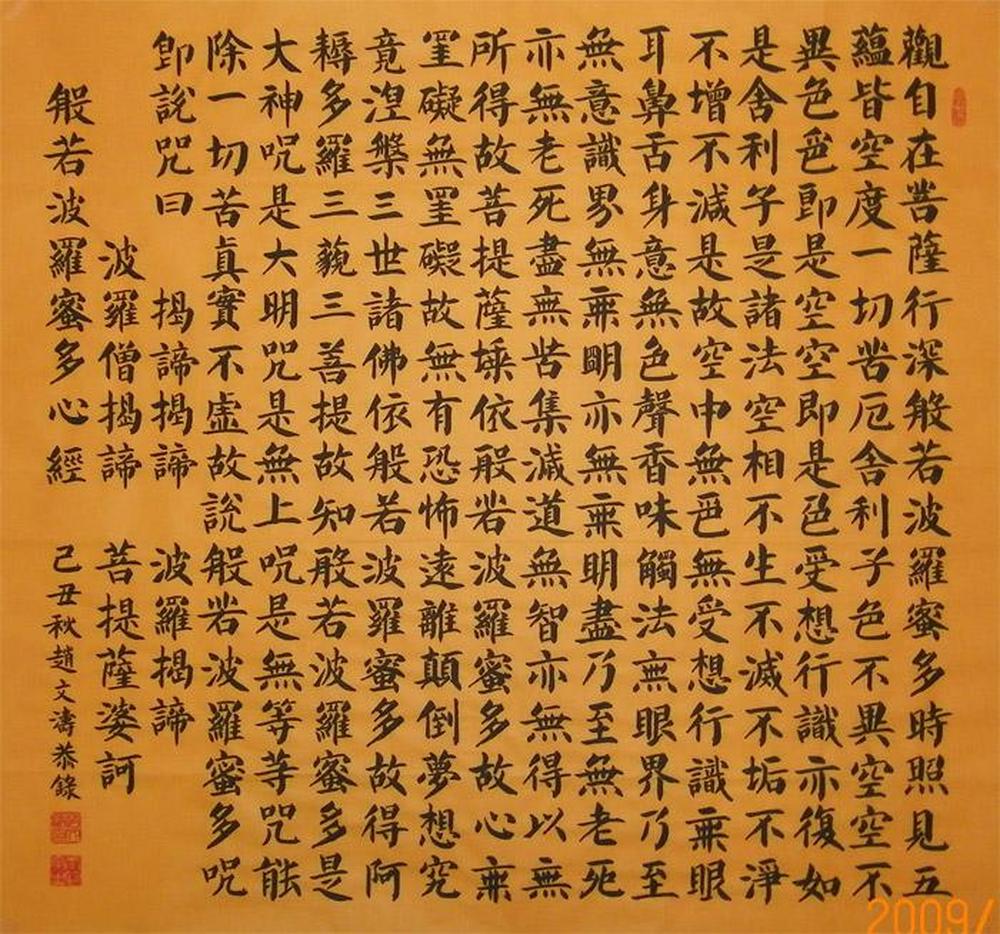 觀自在菩薩行深般若波羅蜜多時照見五
蘊皆空度一切苦厄舍利子色不異空空不
異色色即是空空即是色受想行識亦復如
是舍利子是諸法空相不生不滅不垢不淨
不增不減是故空中無色無受想行識無眼
耳鼻舌身意無色聲香味觸法無眼界乃至
無意識界無無明亦無無明盡乃至無老死
亦無老死盡無苦集滅道無智亦無得以無
所得故菩提薩埵依般若波羅蜜多故心無
罣礙無罣礙故無有恐怖遠離顛倒夢想究
竟涅槃三世諸佛依般若波羅蜜多故得阿
耨多羅三藐三菩提故知般若波羅蜜多是
大神呪是大明呪是無上呪是無等等呪能
除一切苦真實不虛故說般若波羅蜜多呪
即說呪曰 揭諦揭諦 波羅揭諦
波羅僧揭諦 菩提薩婆訶
般若波羅蜜多心經 己丑秋趙文濤恭錄
2009/